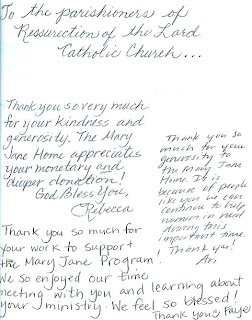 To the parishioners of
Ressurection of the Lord
Catholic Church...
Thank you so very much
for your kindness and
generosity. The Mary
Jane Home appreciates
your monetary and
diaper donation!
God Bless You,
Rebecca
Thank you so
much for your
generosity to
the Mary Jane
Home. It is
because of people
like you we can
continue to help
women in need
during this
important time.
Thank you!
Ari
Thank you so much for
your work to support
the Mary Jane Program!
We so enjoyed our time
meeting with you and learning about
your ministry. We feel so blessed!
Thank you! Faye